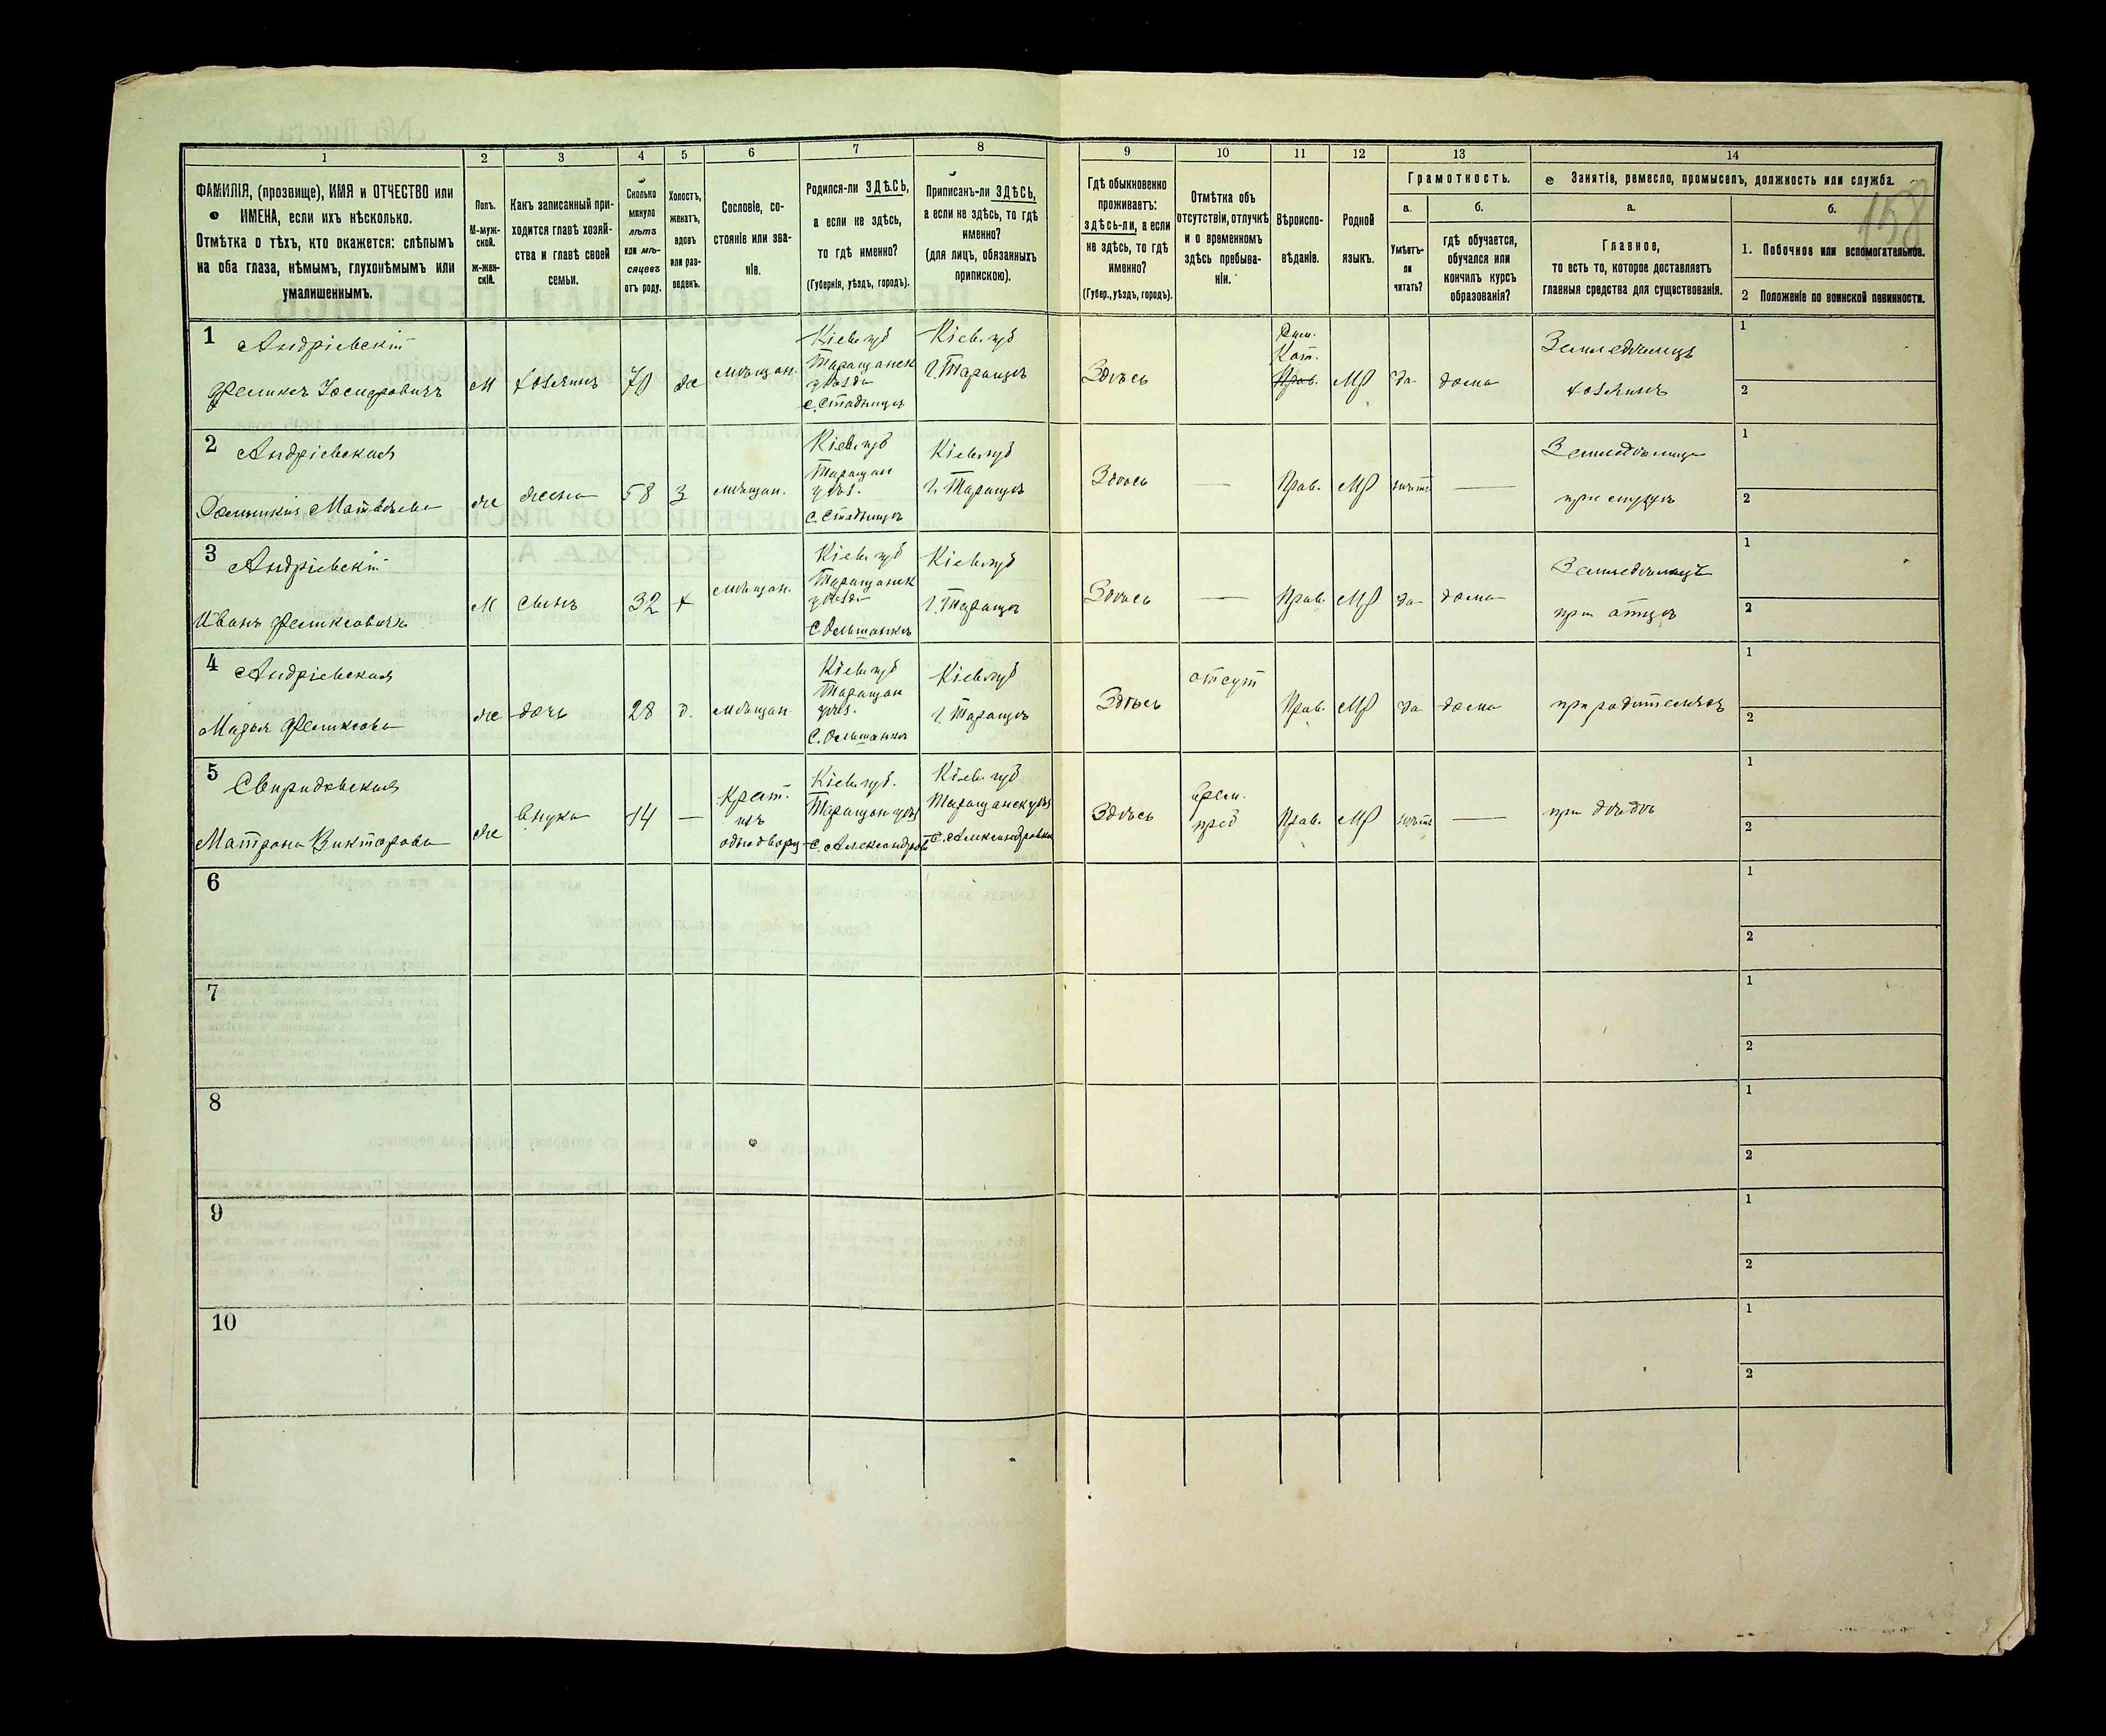 1 2 3 4 5 6 7 8 9 10 11 12 13 14
ФАМИЛІЯ, (прозвище), ИМЯ и ОТЧЕСТВО или
ИМЕНА, если ихъ нѣсколько.
Отмѣтка о тѣхъ, кто окажется: слѣпымъ
на оба глаза, нѣмымъ, глухонѣмымъ или
умалишеннымъ.
Полъ.
М-муж-
ской.
Ж-жен-
скій.
Какъ записанный при-
ходится главѣ хозяй-
ства и главѣ своей
семьи.
Сколько
минуло
лѣтъ
или мѣ-
сяцевъ
отъ роду.
Холостъ,
женатъ,
вдовъ
или раз-
веденъ.
Сословіе, со-
стояніе или зва-
ніе.
Родился-ли ЗДѢСЬ,
а если не здѣсь,
то гдѣ именно?
(Губернія, уѣздъ, городъ).
Приписанъ-ли ЗДѢСЬ,
а если не здѣсь, то гдѣ
именно?
(для лицъ, обязанныхъ
припискою).
Гдѣ обыкновенно
проживаетъ:
здѣсь-ли, а если
не здѣсь, то гдѣ
именно?
(Губер., уѣздъ, городъ).
Отмѣтка объ
отсутствіи, отлучкѣ
и о временномъ
здѣсь пребыва-
ніи.
Вѣроиспо-
вѣданіе.
Родной
языкъ.
Грамотность.
а.
Умѣетъ-
ли
читать?
б.
гдѣ обучается,
обучался или
кончилъ курсъ
образованія?
Занятіе, ремесло, промыселъ, должность или служба.
158
а.
Главное,
то есть то, которое доставляетъ
главныя средства для существованія.
б.
1. Побочное или вспомогательное.
2 Положеніе по воинской повинности.
1
Андріевскій
Феликсъ Іосифовичъ
М
хозяинъ
70
ж
мѣщан.
Кіев. губ
Таращанск
уѣзда
с. Стадница
Кіев. губ
г. Тараща
Здѣсь
Рим.
Кат.
Прав.
МР
да
дома
Земледѣлецъ
хозяинъ
1
2
2
Андріевская
Матвѣева
же
жена
58
з
мѣщан.
Кіев. губ
Таращан
уѣз.
с. Стадница
Кіев. губ
г. Тараща
Здѣсь
—
Прав.
МР
—
при мужѣ
1
2
3
Андріевскій
Иванъ Феликсовичъ
М
сынъ
32
х
мѣщан.
Кіев. губ
Таращанск
уѣзда
с. Ольшанка
Кіев. губ
г. Тараща
Здѣсь
—
Прав.
МР
да
дома
Земледѣлецъ
при отцѣ
1
2
4
Андріевская
Марья Феликсова
же
дочь
28
д.
мѣщан
Кіев. губ
Таращан
уѣз.
с. Ольшанка
Кіев. губ
г. Тараща
Здѣсь
отсут
Прав.
МР
да
дома
при родителяхъ
1
2
5
Свиридовская
Матрона Викторова
же
внука
14
—
Крест.
изъ
однодворц
Кіев. губ.
Таращан уѣз
с. Александров
Кіев. губ
Таращанск уѣз
с. Александровка
Здѣсь
врем.
преб
Прав.
МР
—
при дѣдѣ
1
2
6
1
2
7
1
2
8
1
2
9
1
2
10
1
2